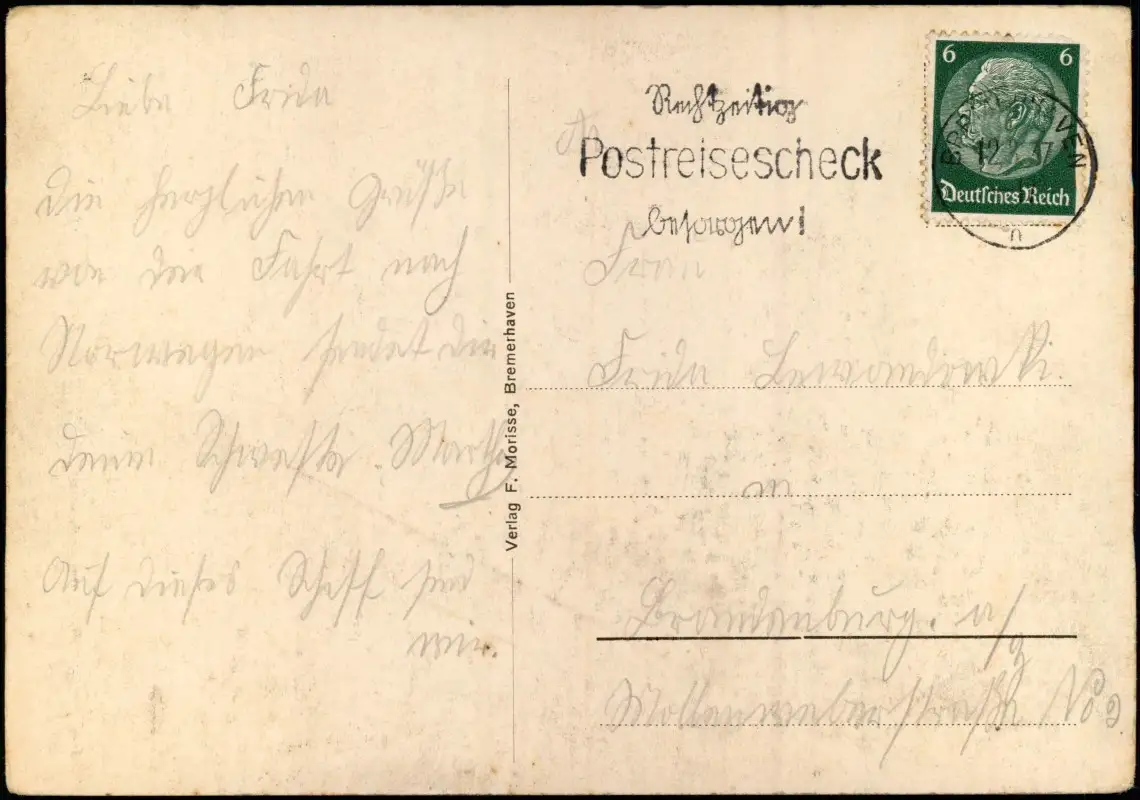 Liebe Frida
Die herzlichen Grüße
von der Fahrt nach
Norwegen sendet dir
deine Schwester Martha
Auf dieses Schiff sind
wir.
Verlag F. Morisse, Bremerhaven
Rechtzeitig
Postreisescheck
besorgen!
6 6
Deutsches Reich
BREMERHAVEN
12.2. 7
n
Frau
Frida Lewandowski.
in
Brandenburg. a/
Wollenweberstraße No